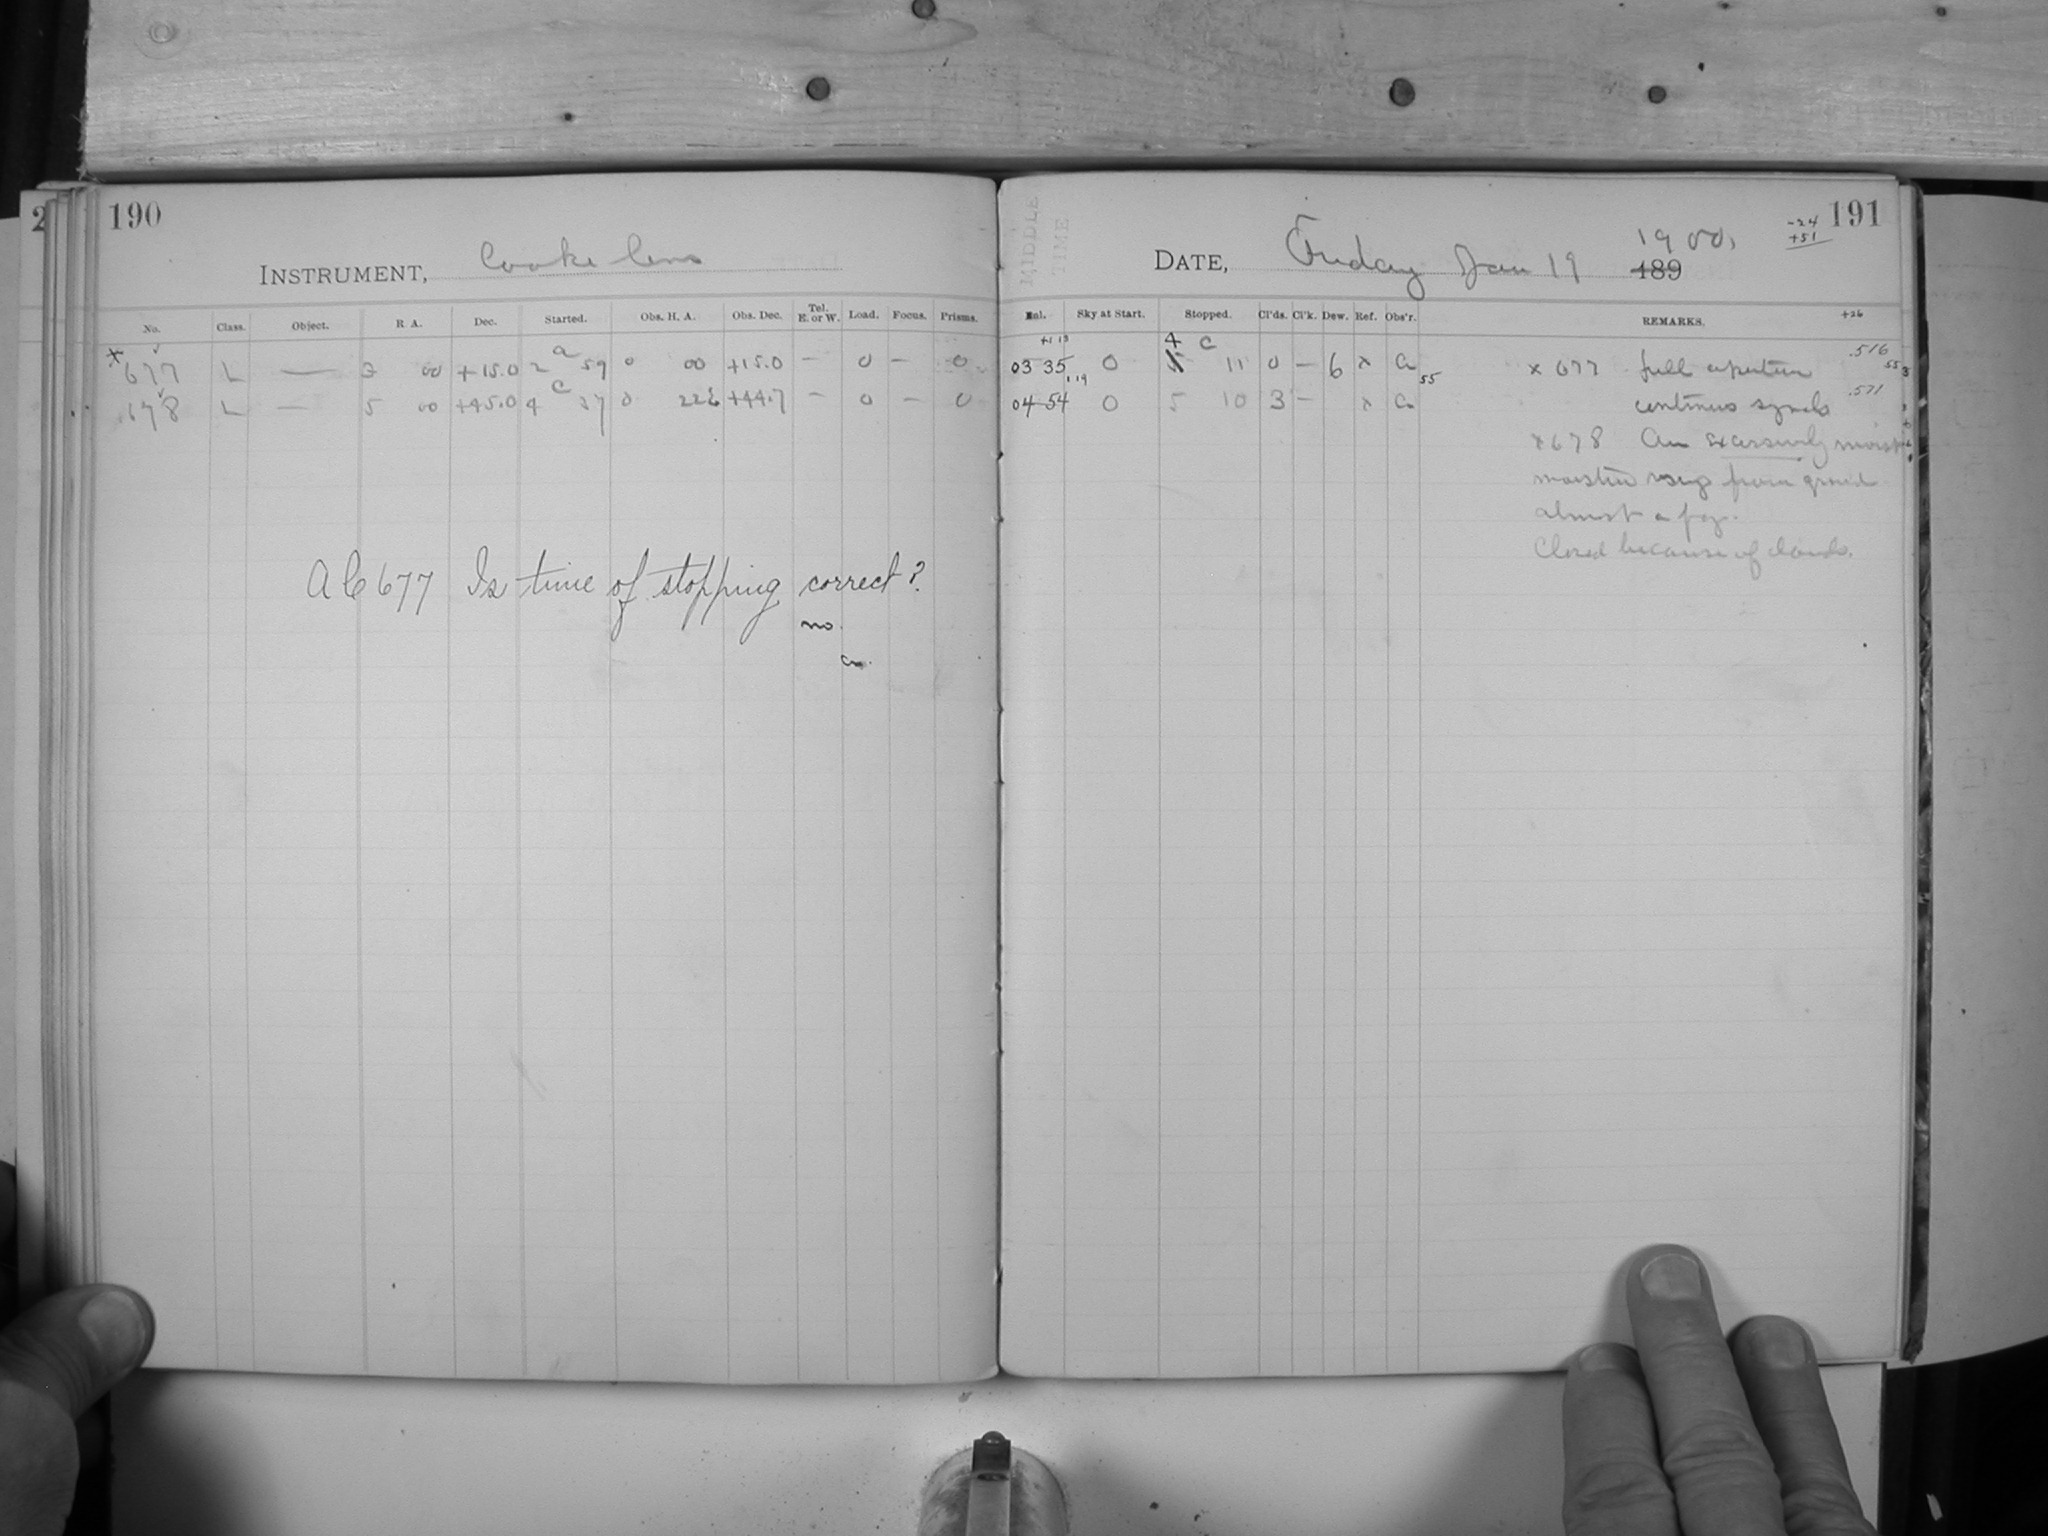 190
INSTRUMENT, Cooke lens
No. Class. Object. R A. Dec. Started. Obs. H. A. Obs. Dec. Tel. E. or W. Load. Focus. Prisms.
x 677 L — 3 00 +15.0 2 a 59 0 00 +15.0 — 0 — 0
678 L — 5 00 +45.0 4 c 37 0 +44.7 — 0 — 0
A C 677 Is time of stopping correct?
no.
191
MIDDLE TIME
DATE, Friday Jan 19 1900. 189
-24
+51
Sky at Start. Stopped. Cl'ds. Cl'k. Dew. Ref. Obs'r. REMARKS. +26
03 35 0 4 c 11 0 — 6 x
04 54 1 19 0 5 10 3 — x
55
x 677 full aperture .516
continuous .571
x 678 Air excessively moist
moisture rising from ground
almost a fog.
Closed because of clouds.